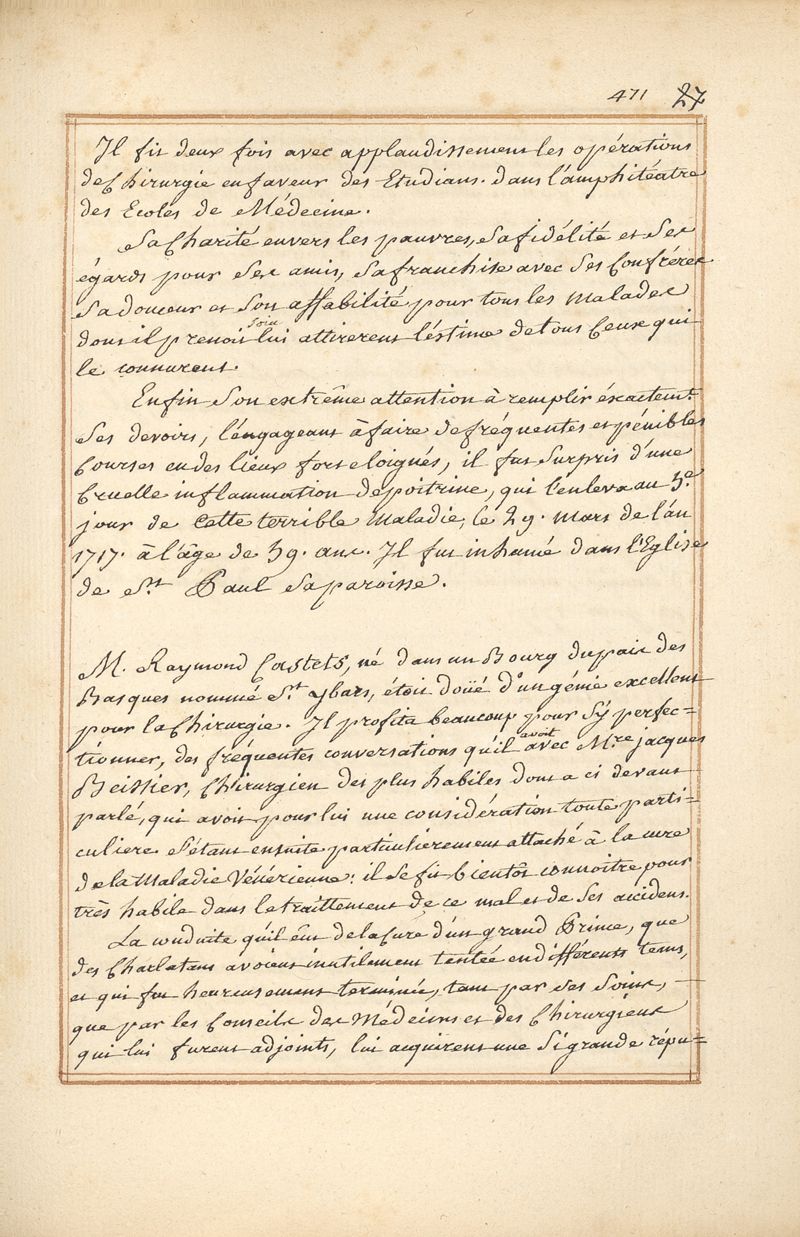 471 27
Il fit deux fois avec applaudissement les opérations
de Chirurgie en faveur des Etudians. dans l'amphitéatre
des Ecoles de Médecine.
Sa Charité envers les pauvres, sa fidélité et ses
égards pour ses amis, sa franchise avec ses Confréres
sa douceur et son affabilité pour tous les Malades
dont il prenoit soin lui attirerent l'éstime de tous Ceux qui
le connurent.
Enfin son extrême attention à remplir éxactemt.
ses devoirs, l'engageant à faire de fréquentes et pénibles
Courses en des lieux fort eloignés, il fut surpris d'une
Cruelle inflammation de poitrine, qui l'enleva au 5e.
jour de Cette terrible Maladie, le 29. mars de l'an
1717. à l'âge de 59. ans. Il fut inhumé dans l'Eglise
de St. Paul sa paroisse.
M. Raymond Castets, né dans un Bourg du païs des
Basques nommé St. ybars, étoit doüé d'un génie excellent
pour la Chirurgie. Il profita beaucoup pour s'y perfec=
tionner, des fréquentes conversations qu'il avoit avec Mre. jacques
Beissier, Chirurgien des plus habiles dont a ci devant
parlé, qui avoit pour lui une considération toute parti=
culiere s'étant ensuite particulierement attaché à la cure
de la Maladie Vénérienne: il se fit bientôt connoitre pour
très habile dans le traittement de ce mal et de ses accidens.
La conduite qu'il eût de la Cure d'un grand Prince, que
des Charlatans avoient inutilement tentée en différents tems,
et qui fut heureusement terminée, tant par ses soins, —
que par les Conseils des Médecins et des Chirurgiens
qui lui furent adjoints, lui acquirent une si grande répu=